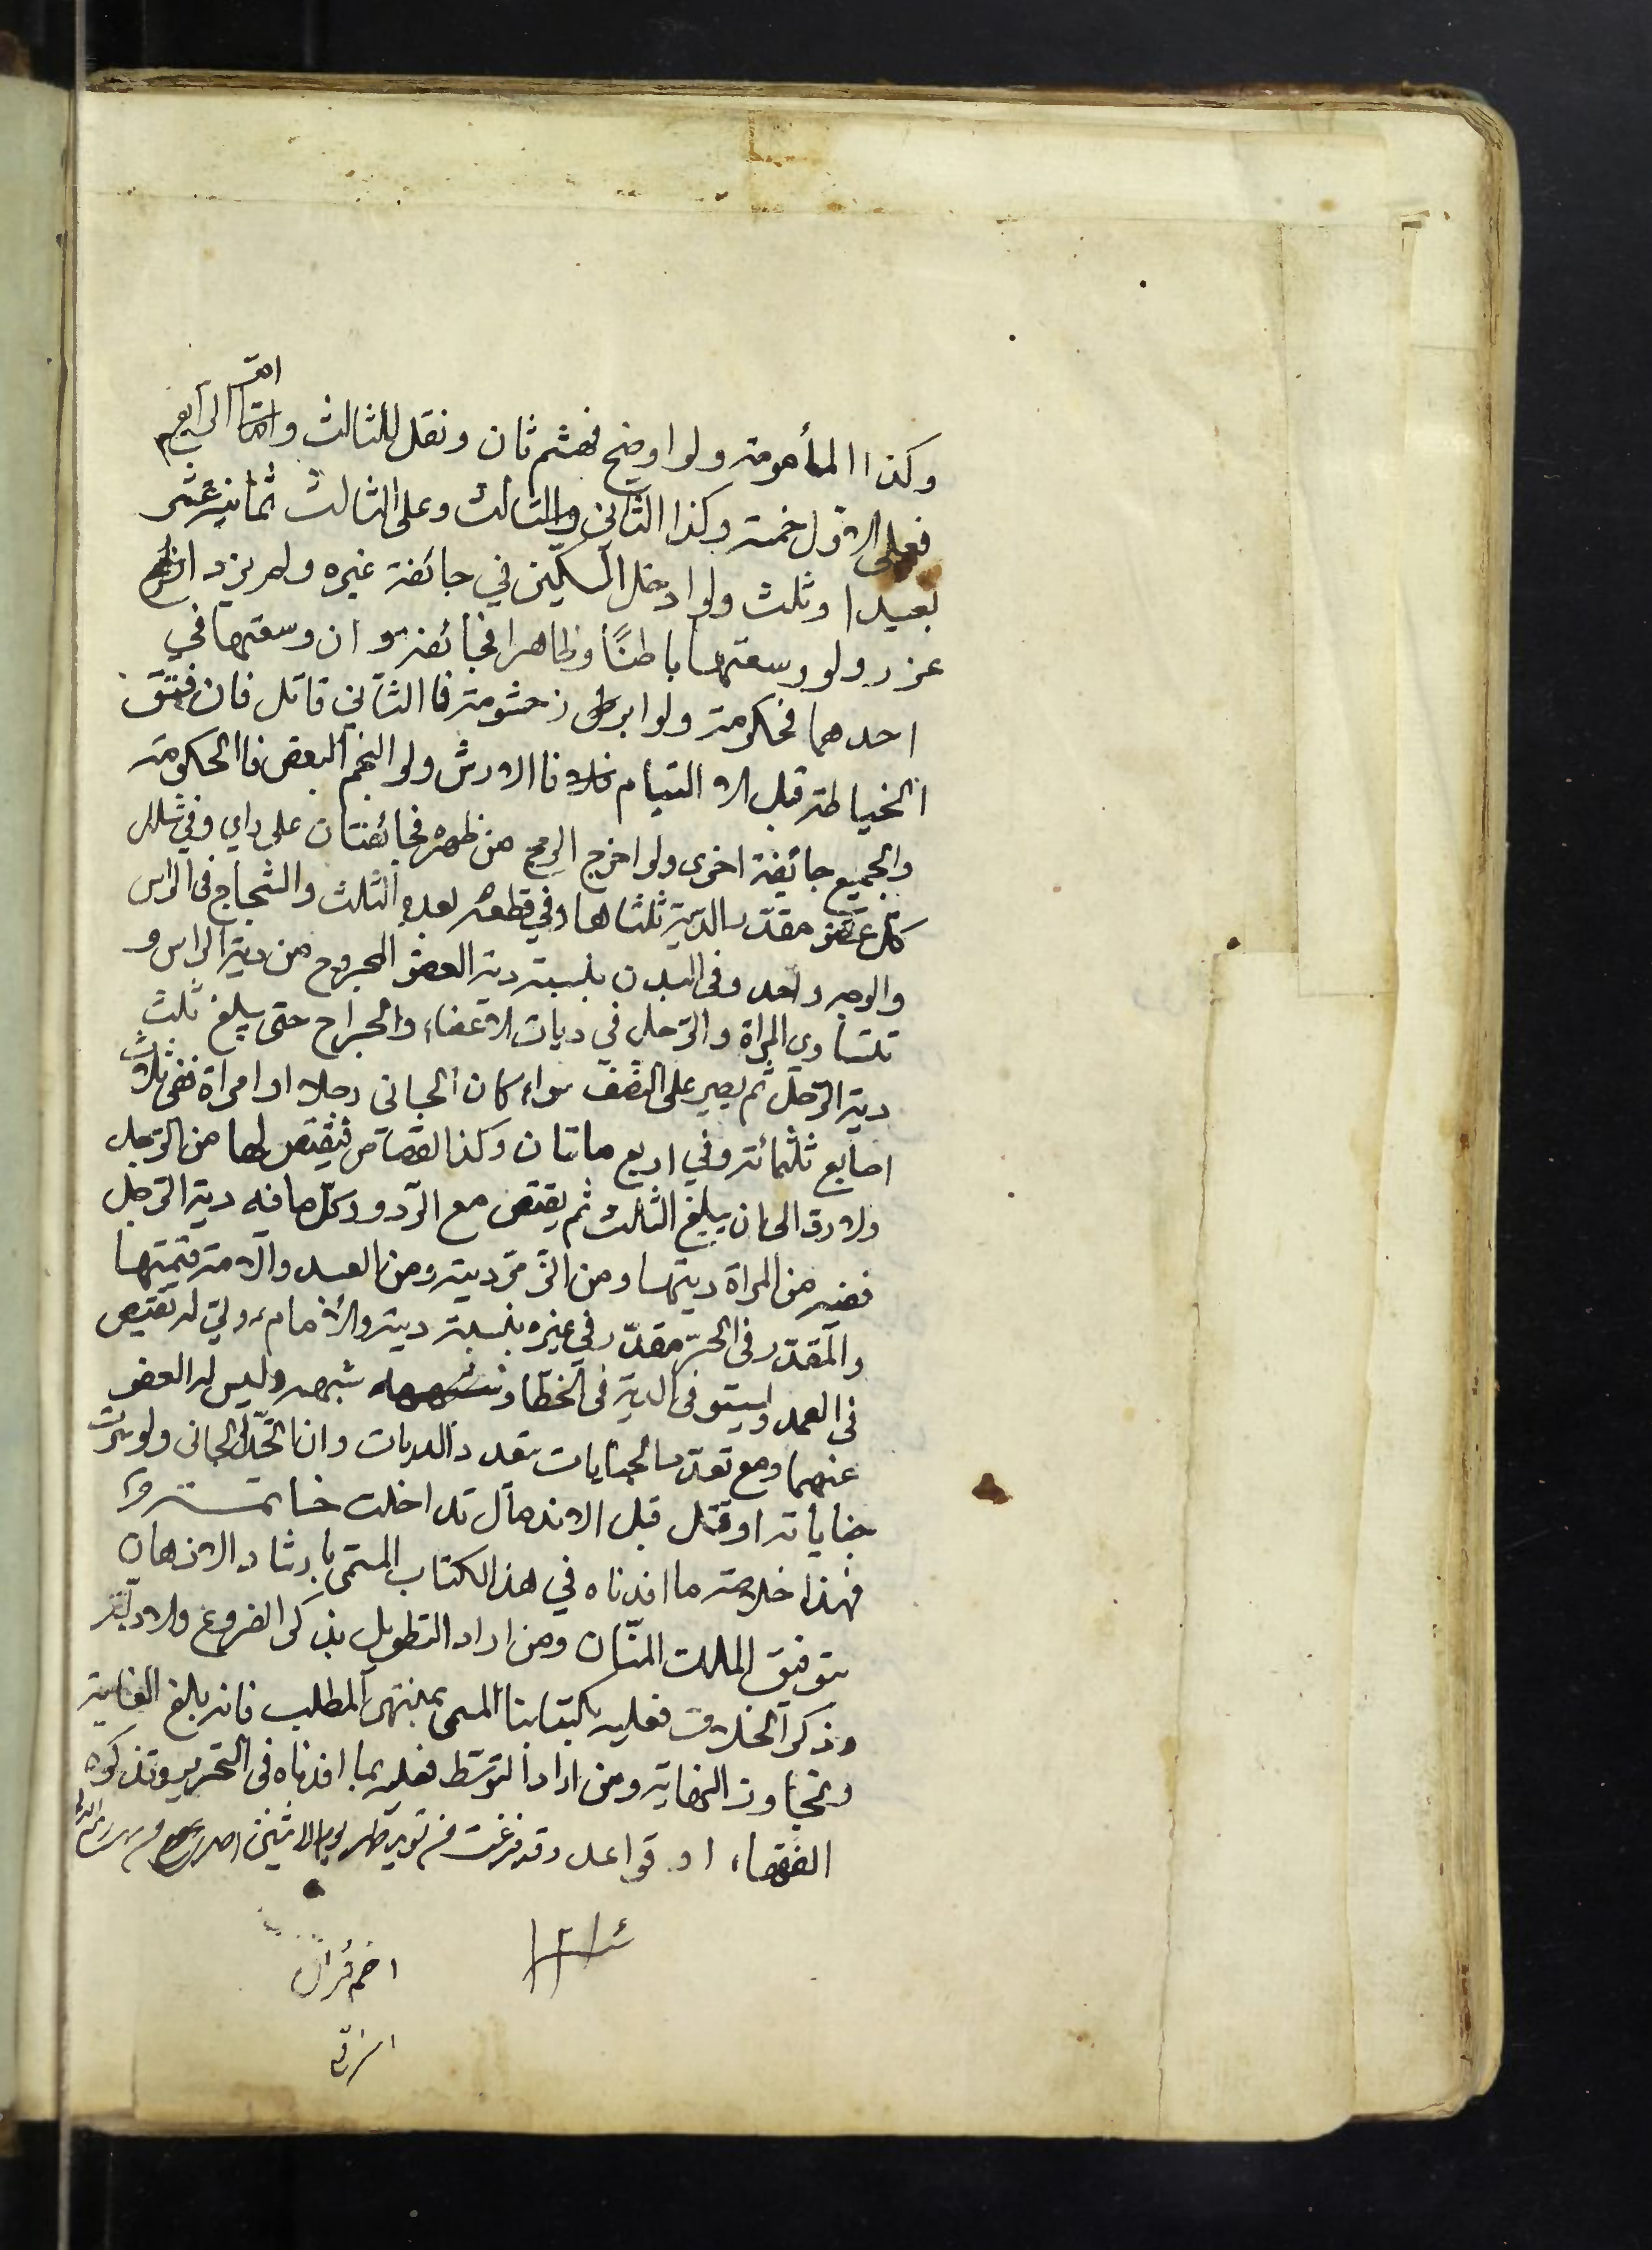 ام
وكذا المأمومة ولو اوضح فهشم ثان ونقل للثالث واما الرابع
فعلى الاول خمسة وكذا الثاني والثالث وعلى الثالث ثمانية عشر
بعيرا وثلث ولو ادخل السكين في جائفة غيره ولم يزد
عزر ولو وسعتها باطنًا وظاهرا فجائفة و ان وسعتها في
احدهما فحكومة ولو ابرز حشومة فا الثاني قاتل فان فتق
الخياطة قبل الا التيام فلا فا الارش ولو التحم البعض فا الحكومة
والجميع جائفة اخرى ولو اخرج الرمح من ظهره فجائفتان على راي وفي شلل
كل عضو مقدر الدية ثلثاها وفي قطعه بعده الثلث والشجاج في الراس
والوجه واحد وفي البدن بنسبة دية العضو المجروح من دية الراس و
تتساوي المراة والرجل في ديات الاعضاء والجراح حتى يبلغ ثلث
دية الرجل ثم يصير على النصف سواء كان الجاني رجلا او امراة ففي ثلاث
اصابع ثلثمائة وفي اربع ماتان وكذا القصاص فيقتص لها من الرجل
ولا رد الى ان يبلغ الثالث ثم يقتص مع الرد وكل ما فيه دية الرجل
ففيه من المراة ديتها ومن الذمي ديته ومن العبد والامة قيمتها
والمقدر في الحر مقدر في غيره بنسبة دية والامام ولي له يقتص
في العمد ويستوفي الدية في الخطا و شبهه وليس له العفو
عنهما ومع تعدد الجنايات يتعدد الديات وان اتحد الجاني ولو سرت
جناياته او قتل قبل الاندمال تداخلت خاتمة
فهذا خلاصة ما افدناه في هذا الكتاب المسمى بارشاد الاذهان
بتوفيق الملك المنان ومن اراد التطويل بذكر الفروع والادلة
وذكر الخلاف فعليه بكتابنا المسمى بمنتهى المطلب فانه بلغ الغاية
وتجاوز النهاية ومن اراد التوسط فعليه بما افدناه في التحرير وتذكره
الفقهاء او قواعد وقد فرغت من يوم الاثنين